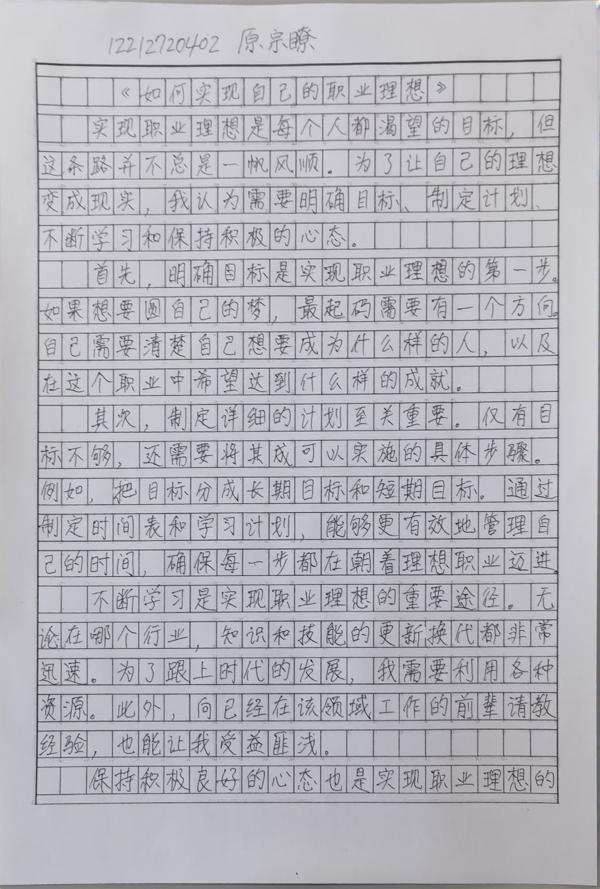 12212720402 原宗瞭
《如何实现自己的职业理想》
实现职业理想是每个人都渴望的目标，但
这条路并不总是一帆风顺。为了让自己的理想
变成现实，我认为需要明确目标、制定计划、
不断学习和保持积极的心态。
首先，明确目标是实现职业理想的第一步。
如果想要圆自己的梦，最起码需要有一个方向。
自己需要清楚自己想要成为什么样的人，以及
在这个职业中希望达到什么样的成就。
其次，制定详细的计划至关重要。仅有目
标不够，还需要将其成可以实施的具体步骤。
例如，把目标分成长期目标和短期目标。通过
制定时间表和学习计划，能够更有效地管理自
己的时间，确保每一步都在朝着理想职业迈进。
不断学习是实现职业理想的重要途径。无
论在哪个行业，知识和技能的更新换代都非常
迅速。为了跟上时代的发展，我需要利用各种
资源。此外，向已经在该领域工作的前辈请教
经验，也能让我受益匪浅。
保持积极良好的心态也是实现职业理想的